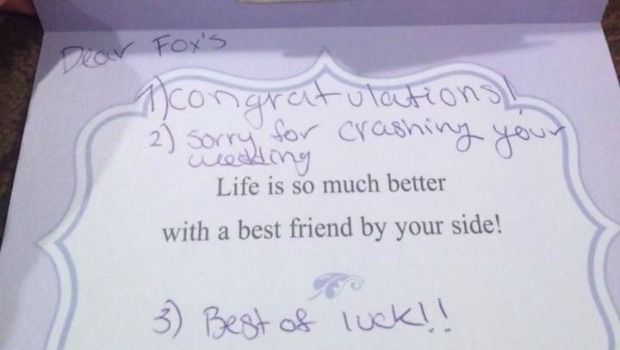 Dear Fox's
1) congratulations!
2) sorry for crashing your
wedding
Life is so much better
with a best friend by your side!
3) Best of luck!!